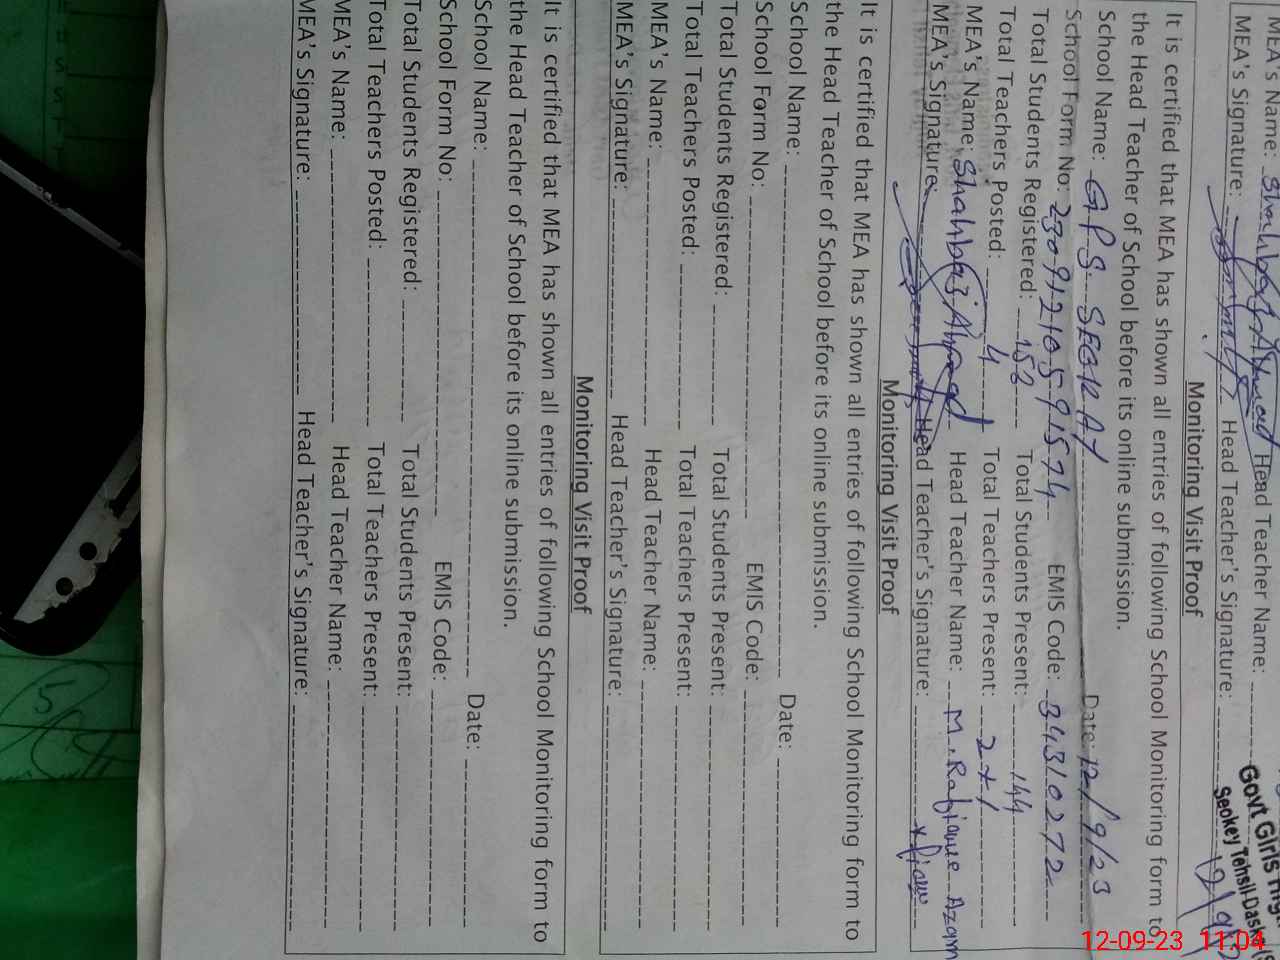 MEA's Name: Shahbaz Ahmad Head Teacher Name:
MEA's Signature: Head Teacher's Signature:
Govt Girls Hig
Seokey Tehsil Daska (S
Monitoring Visit Proof
It is certified that MEA has shown all entries of following School Monitoring form to
the Head Teacher of School before its online submission.
School Name: GPS SEOKAY Date: 12/9/23
School Form No: EMIS Code: 34310272
Total Students Registered: 153 Total Students Present: 144
Total Teachers Posted: 4 Total Teachers Present: 2+1
MEA's Name: Shahbaz Ahmad Head Teacher Name: M. Rafique Azam
MEA's Signature: Head Teacher's Signature:
Monitoring Visit Proof
It is certified that MEA has shown all entries of following School Monitoring form to
the Head Teacher of School before its online submission.
School Name: Date:
School Form No: EMIS Code:
Total Students Registered: Total Students Present:
Total Teachers Posted: Total Teachers Present:
MEA's Name: Head Teacher Name:
MEA's Signature: Head Teacher's Signature:
Monitoring Visit Proof
It is certified that MEA has shown all entries of following School Monitoring form to
the Head Teacher of School before its online submission.
School Name: Date:
School Form No: EMIS Code:
Total Students Registered: Total Students Present:
Total Teachers Posted: Total Teachers Present:
MEA's Name: Head Teacher Name:
MEA's Signature: Head Teacher's Signature:
12-09-23 11:04